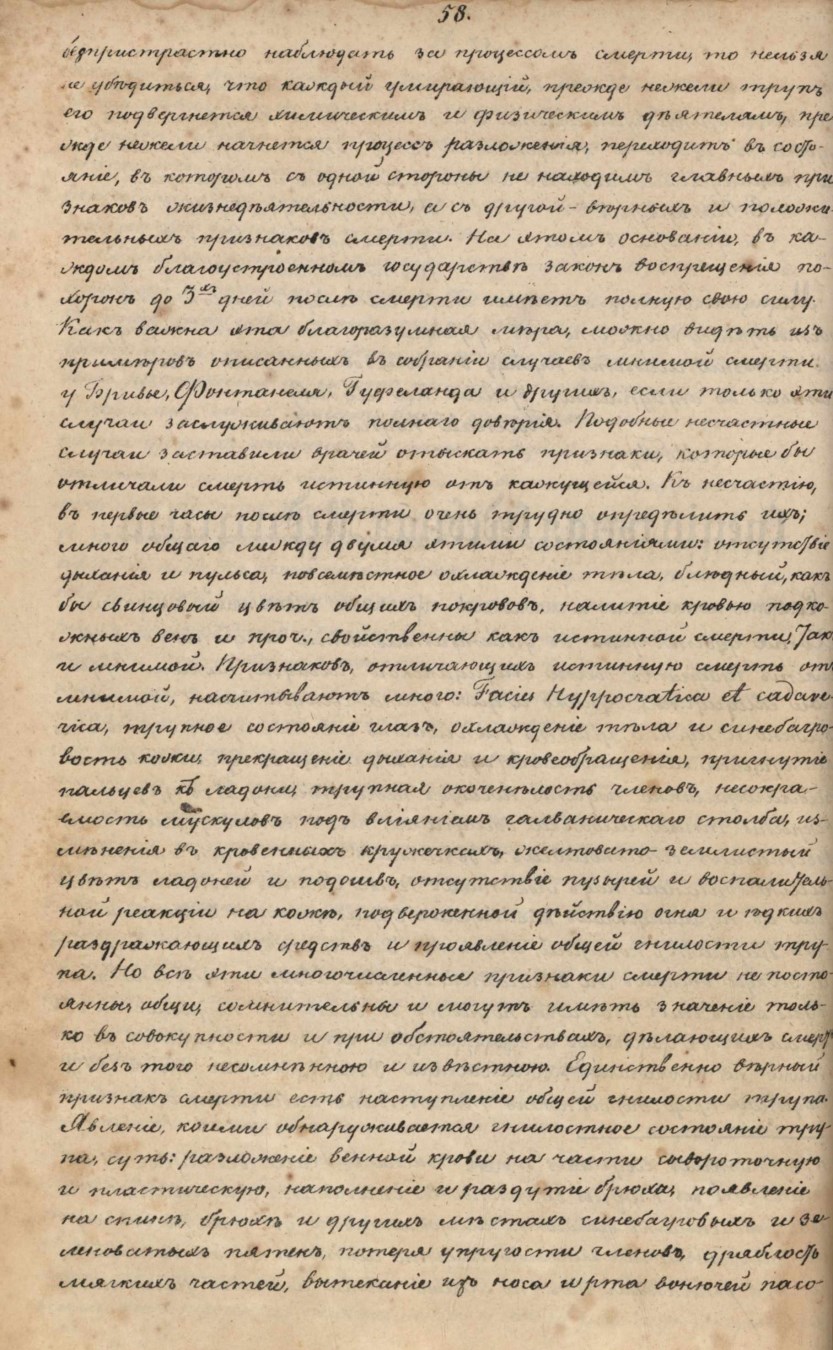 58.
безпристрастно наблюдать за процессомъ смерти, то нельзя
не убѣдиться, что каждый умирающій, прежде нежели трупъ
его подвергнется химическимъ и физическимъ дѣятелямъ, пре
жде нежели начнется процессъ разложенія, переходитъ въ состо-
яніе, въ которомъ съ одной стороны не находимъ главныхъ при
знаковъ жизнедѣятельности, а съ другой - вѣрныхъ и положи
тельныхъ признаковъ смерти. На этомъ основаніи, въ ка-
ждомъ благоустроенномъ государствѣ законъ воспрещенія по-
хоронъ до 3хъ дней послѣ смерти имѣетъ полную свою силу.
Какъ важна эта благоразумная мѣра, можно видѣть изъ
примѣровъ описанныхъ въ собраніи случаевъ мнимой смерти
у Бривье, Фонтанеля, Гуфеланда и другихъ, если только эти
случаи заслуживаютъ полнаго довѣрія. Подобные несчастные
случаи заставили врачей отыскать признаки, которые бы
отличали смерть истинную отъ кажущейся. Къ несчастію,
въ первые часы послѣ смерти очень трудно опредѣлить ихъ;
много общаго между двумя этими состояніями: отсутствіе
дыханія и пульса, повсемѣстное охлажденіе тѣла, блѣдный, какъ
бы свинцовый цвѣтъ общихъ покрововъ, налитіе кровью подко-
жныхъ венъ и проч., свойственны какъ истинной смерти, такъ
и мнимой. Признаковъ, отличающихъ истинную смерть отъ
мнимой, насчитываютъ много: Facies Hyppocratica et cadave-
rica, трупное состояніе глазъ, охлажденіе тѣла и синебагро-
вость кожи, прекращеніе дыханія и кровеобращенія, пригнутіе
пальцевъ къ ладони, трупная окоченѣлость членовъ, несокра-
емость мускуловъ подъ вліяніемъ галваническаго столба, из-
мѣненія въ кровенныхъ кружечкахъ, желтовато-землистый
цвѣтъ ладоней и подошвъ, отсутствіе пузырей и воспалитель-
ной реакціи на кожѣ, подверженной дѣйствію огня и ѣдкихъ
раздражающихъ средствъ и проявленіе общей гнилости тру-
па. Но всѣ эти многочисленные признаки смерти не посто-
янны, общи, сомнительны и могутъ имѣть значеніе толь-
ко въ совокупности и при обстоятельствахъ, дѣлающихъ смерть
и безъ того несомнѣнною и извѣстною. Единственно вѣрный
признакъ смерти есть наступленіе общей гнилости трупа.
Явленіе, коими обнаруживается гнилостное состояніе тру-
па, суть: разложеніе венной крови на части сывороточную
и пластическую, наполненіе и раздутіе брюха, появленіе
на спинѣ, брюхѣ и другихъ мѣстахъ синебагровыхъ и зе
леноватыхъ пятенъ, потеря упругости членовъ, дряблость
мягкихъ частей, вытеканіе изъ носа и рта вонючей пасо-